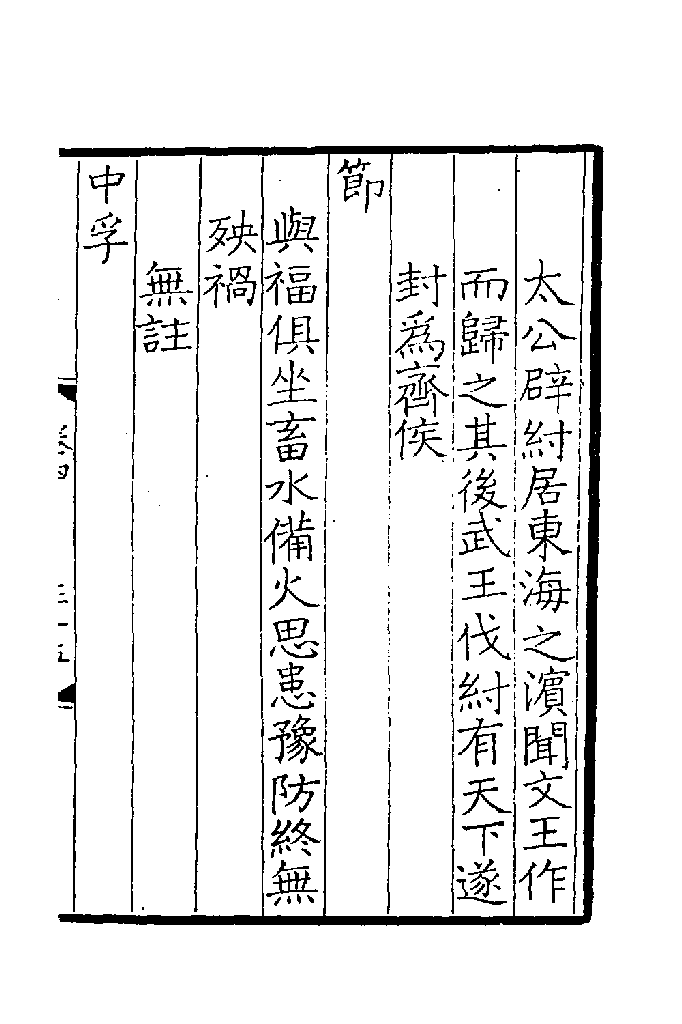 太公辟紂居東海之濵聞文王作
而歸之其後武王伐紂有天下遂
封爲齊侯
節
與福俱坐畜水備火思患豫防終無
殃禍
無註
中孚